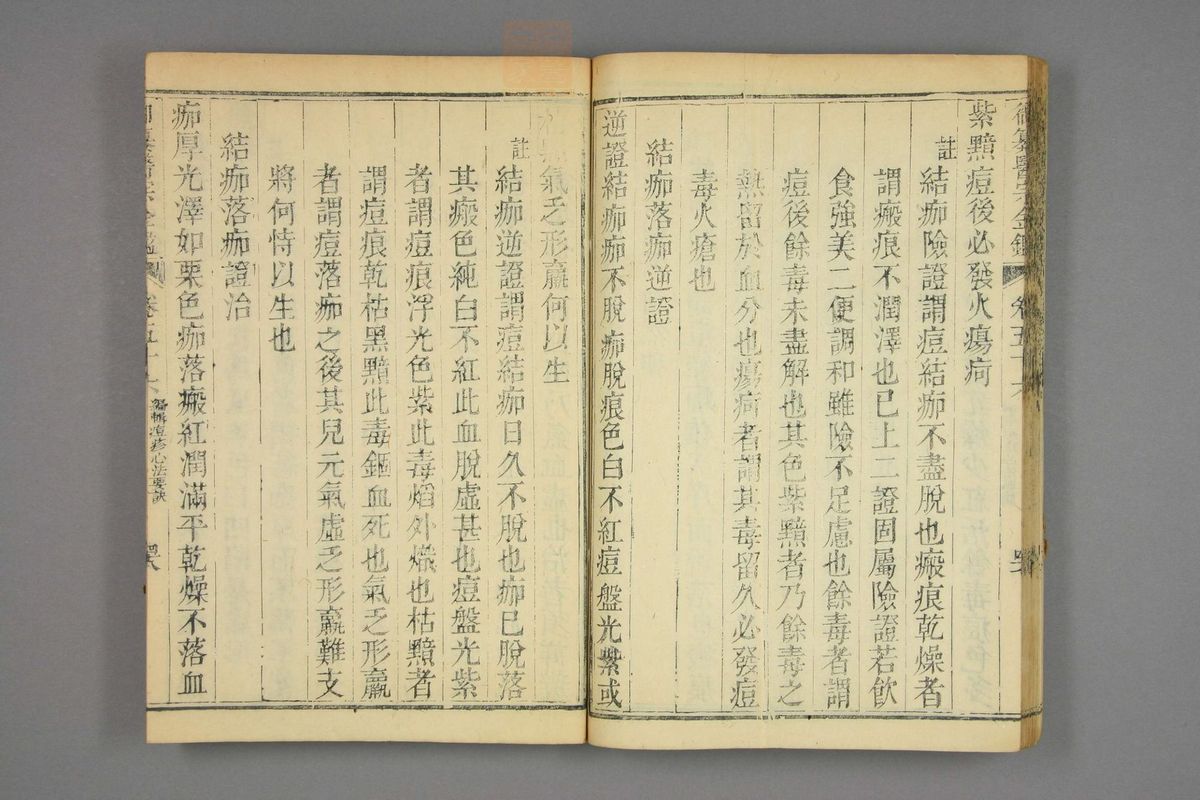 御纂醫宗金鑑 卷五十六
紫黯痘後必發火瘍疴
註
結痂險證謂痘結痂不盡脫也瘢痕乾燥者
謂瘢痕不潤澤也已上二證固屬險證若飲
食強美二便調和雖險不足慮也餘毒者謂
痘後餘毒未盡解也其色紫黯者乃餘毒之
熱留於血分也瘍疴者謂其毒留久必發痘
毒火瘡也
結痂落痂逆證
逆證結痂痂不脫痂脫痕色白不紅痘盤光紫或
黯氣乏形羸何以生
註
結痂逆證謂痘結痂日久不脫也痂已脫落
其瘢色純白不紅此血脫虛甚也痘盤光紫
者謂痘痕浮光色紫此毒熖外熾也枯黯者
謂痘痕乾枯黑黯此毒錮血死也氣乏形羸
者謂痘落痂之後其兒元氣虛乏形羸難支
將何恃以生也
結痂落痂證治
痂厚光澤如栗色痂落瘢紅潤滿平乾燥不落血
御纂醫宗金鑑 卷五十六 編輯痘疹心法要訣